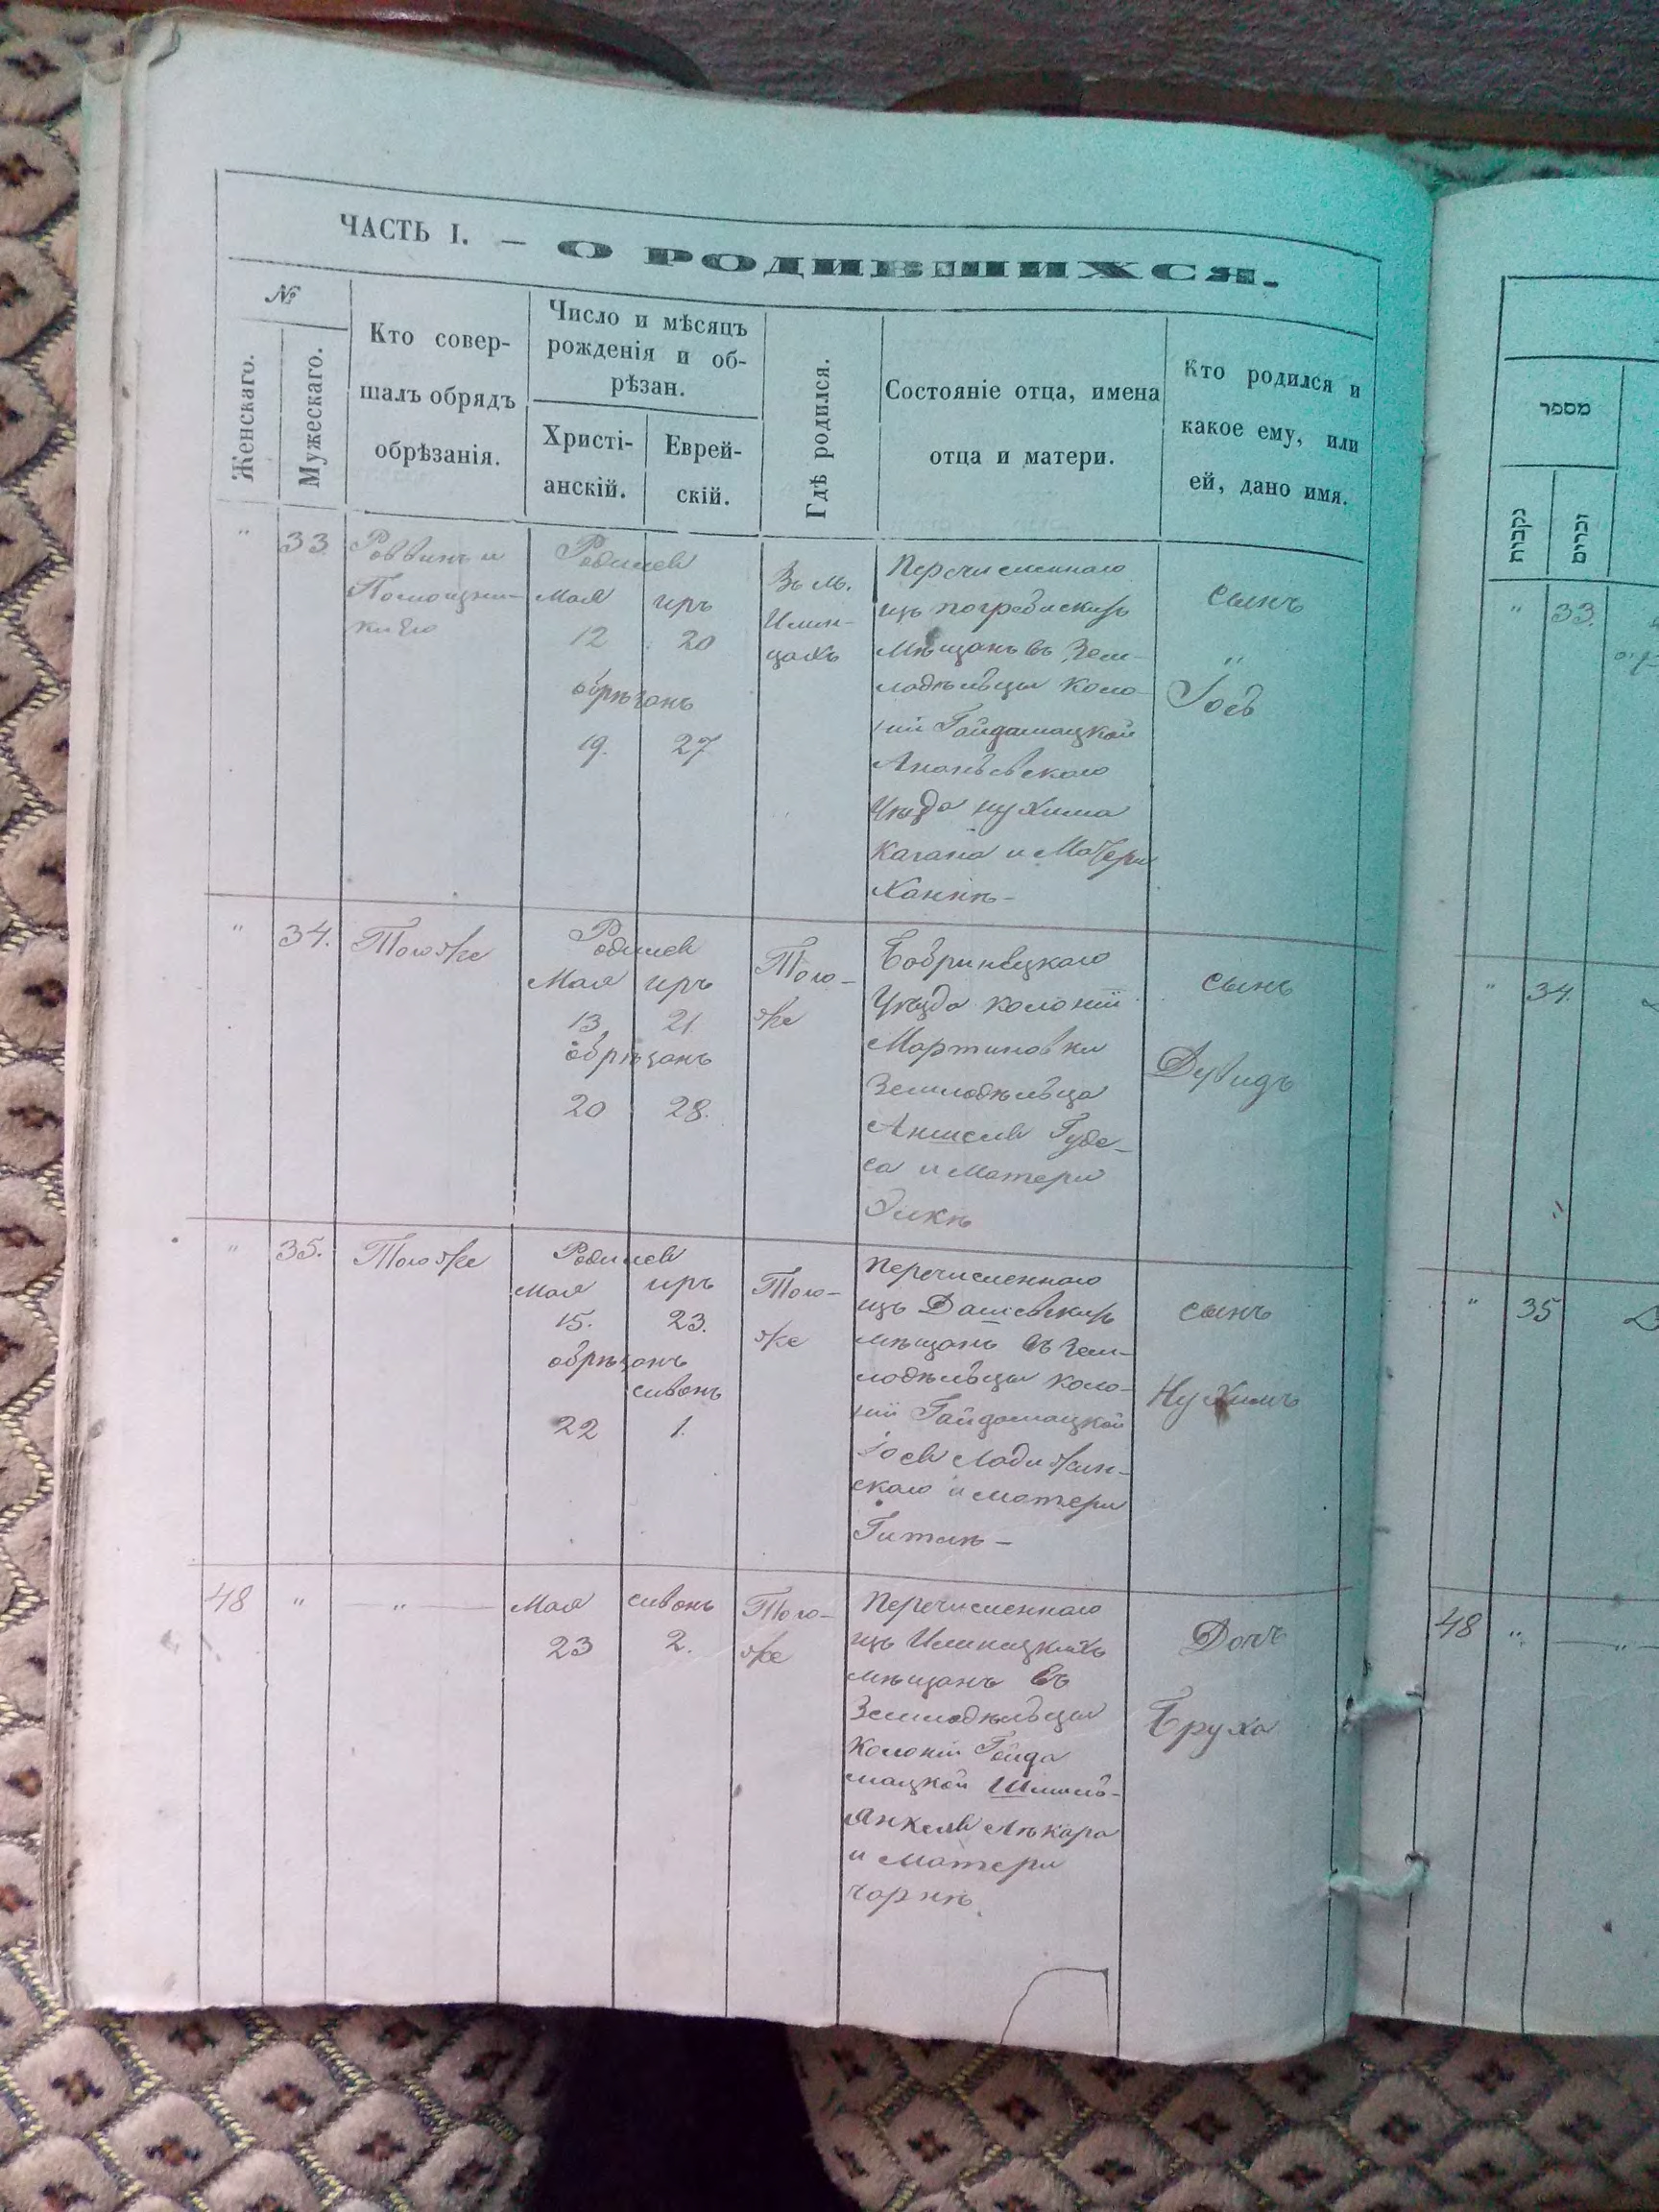 ЧАСТЬ I. — О РОДИВШИХСЯ.
№
Женскаго.
Мужескаго.
Кто совер-
шалъ обрядъ
обрѣзанія.
Число и мѣсяцъ
рожденія и об-
рѣзан.
Христі-
анскій.
Еврей-
скій.
Гдѣ родился.
Состояніе отца, имена
отца и матери.
Кто родился и
какое ему, или
ей, дано имя.
" 33
Раввинъ и
Помощни-
Родился
Мая иръ
12 20
обрѣзанъ
19. 27
Въ м.
Илин-
цахъ
Перечисленнаго
изъ погребискихъ
Мѣщанъ въ Зем-
ледѣльцы коло-
ніи Гайдамацкой
Ананьевскаго
Уѣзда Нухима
Кагана и Матери
Ханны-
сынъ
"
Іосъ
" 34.
Тогоже
Родился
Мая иръ
13. 21.
обрѣзанъ
20 28.
Того-
же
Бобринецкаго
Уѣзда колоніи
Мартиновки
Земледѣльца
Аншеля Гуде-
са и Матери
сынъ
Дувидъ
" 35.
Тогоже
Родился
Мая иръ
15. 23.
обрѣзанъ
сивонъ
22 1.
Того-
же
Перечисленнаго
изъ Дашевскихъ
мѣщанъ въ зем-
ледѣльцы коло-
ніи Гайдамацкой
Іося Ладижин-
скаго и матери
сынъ
Нухимъ
48 " — " —
Мая сивонъ
23 2.
Того-
же
Перечисленнаго
изъ Илинецкихъ
мѣщанъ въ
Земледѣльцы
Колоніи Гайда
мацкой Шмиль-
Янкеля Лѣкара
и Матери
Дочъ
Бруха
מספר
נקבות
זכרים
" 33.
" 34.
" 35
48 " — " —